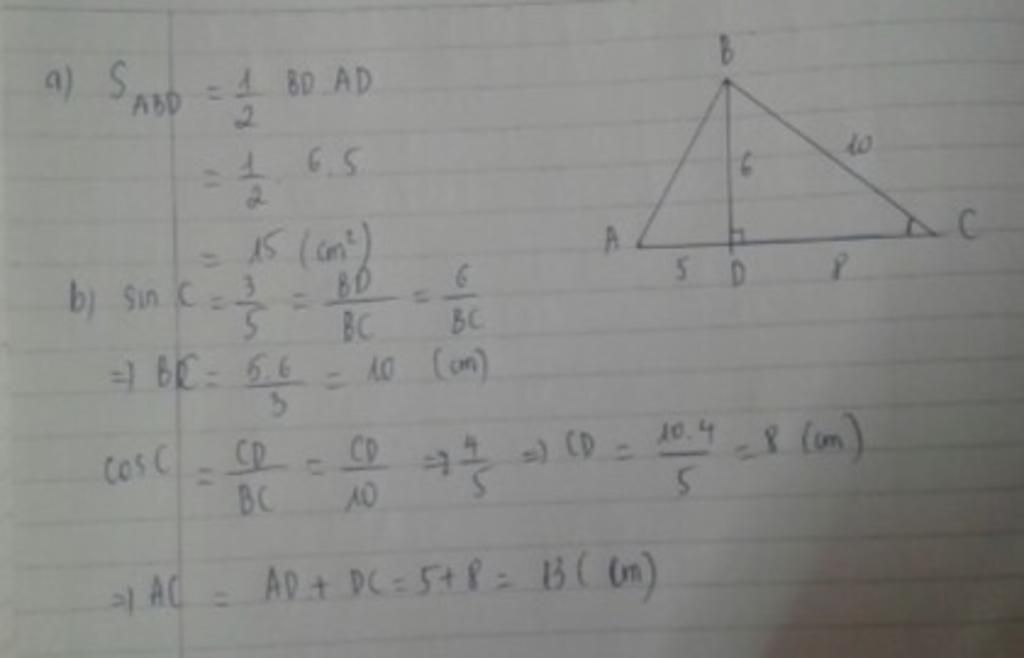 a) S_ABD = 1/2 BD . AD
= 1/2 . 6 . 5
= 15 (cm²)
b) sin C = 3/5 = BD/BC = 6/BC
=> BC = 5.6/3 = 10 (cm)
cosC = CD/BC = CD/10 => 4/5 => CD = 10.4/5 = 8 (cm)
=> AC = AD + DC = 5+8 = 13 (cm)
B
10
6
A
C
5
D
8